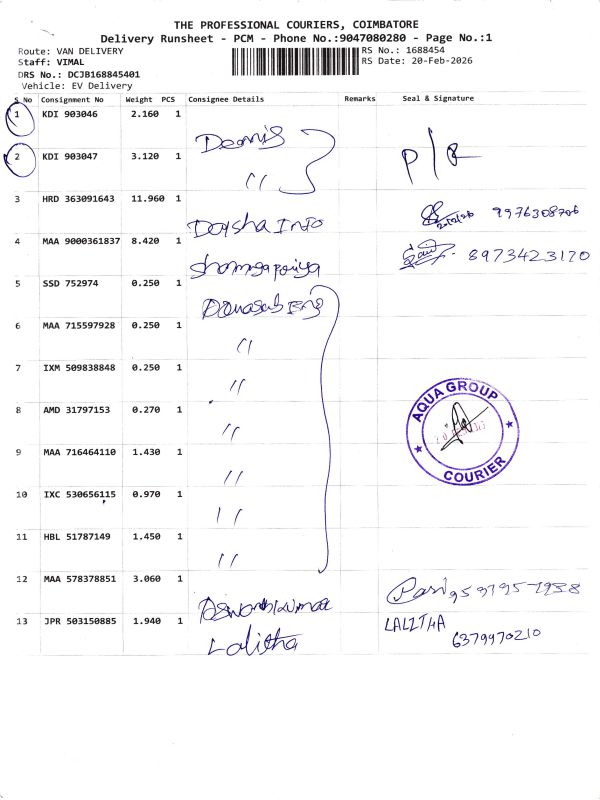 THE PROFESSIONAL COURIERS, COIMBATORE
Delivery Runsheet - PCM - Phone No.:9047080280 - Page No.:1
Route: VAN DELIVERY
RS No.: 1688454
Staff: VIMAL
RS Date: 20-Feb-2026
DRS No.: DCJB168845401
Vehicle: EV Delivery
S No Consignment No Weight PCS Consignee Details Remarks Seal & Signature
1 KDI 903046 2.160 1 Dennis
2 KDI 903047 3.120 1 "
3 HRD 363091643 11.960 1 Info 9976308706
4 MAA 9000361837 8.420 1 8973423170
5 SSD 752974 0.250 1
6 MAA 715597928 0.250 1 "
7 IXM 509838848 0.250 1 "
8 AMD 31797153 0.270 1 "
AQUA GROUP
COURIER
9 MAA 716464110 1.430 1 "
10 IXC 530656115 0.970 1 "
11 HBL 51787149 1.450 1 "
12 MAA 578378851 3.060 1
13 JPR 503150885 1.940 1 Lalitha LALITHA
6379970210